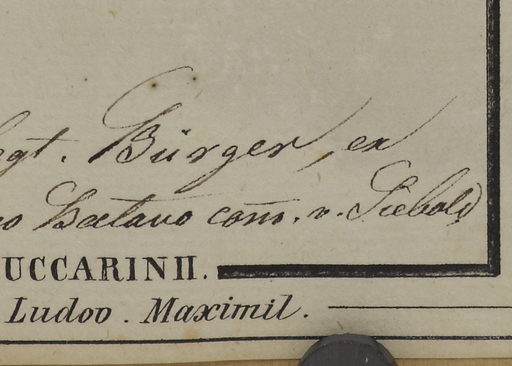 legt. Bürger, ex
Batavo com̄. v. Siebold
UCCARINII.
Ludov. Maximil.